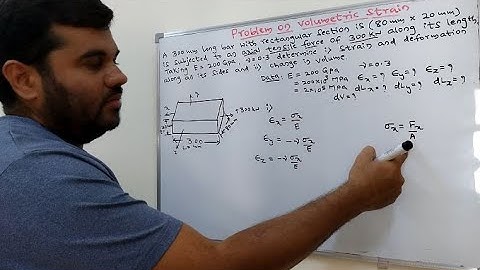 Problem on volumetric Strain
A 300mm long bar with rectangular section is (80mm × 20mm)
is subjected to an axial tensile force of 300kN along its length,
Taking E = 200 Gpa, ν=0.3 determine i) Strain and deformation
along all its sides and ii) change in volume.
Data: E = 200 GPa ν=0.3
= 200×10³ MPa εx = ? εy = ? εz = ?
= 2×10⁵ MPa dLx = ? dLy = ? dLz = ?
dV = ?
300kN
300
εx = σx/E
εy = -ν σx/E
εz = -ν σx/E
σx = Fx/A